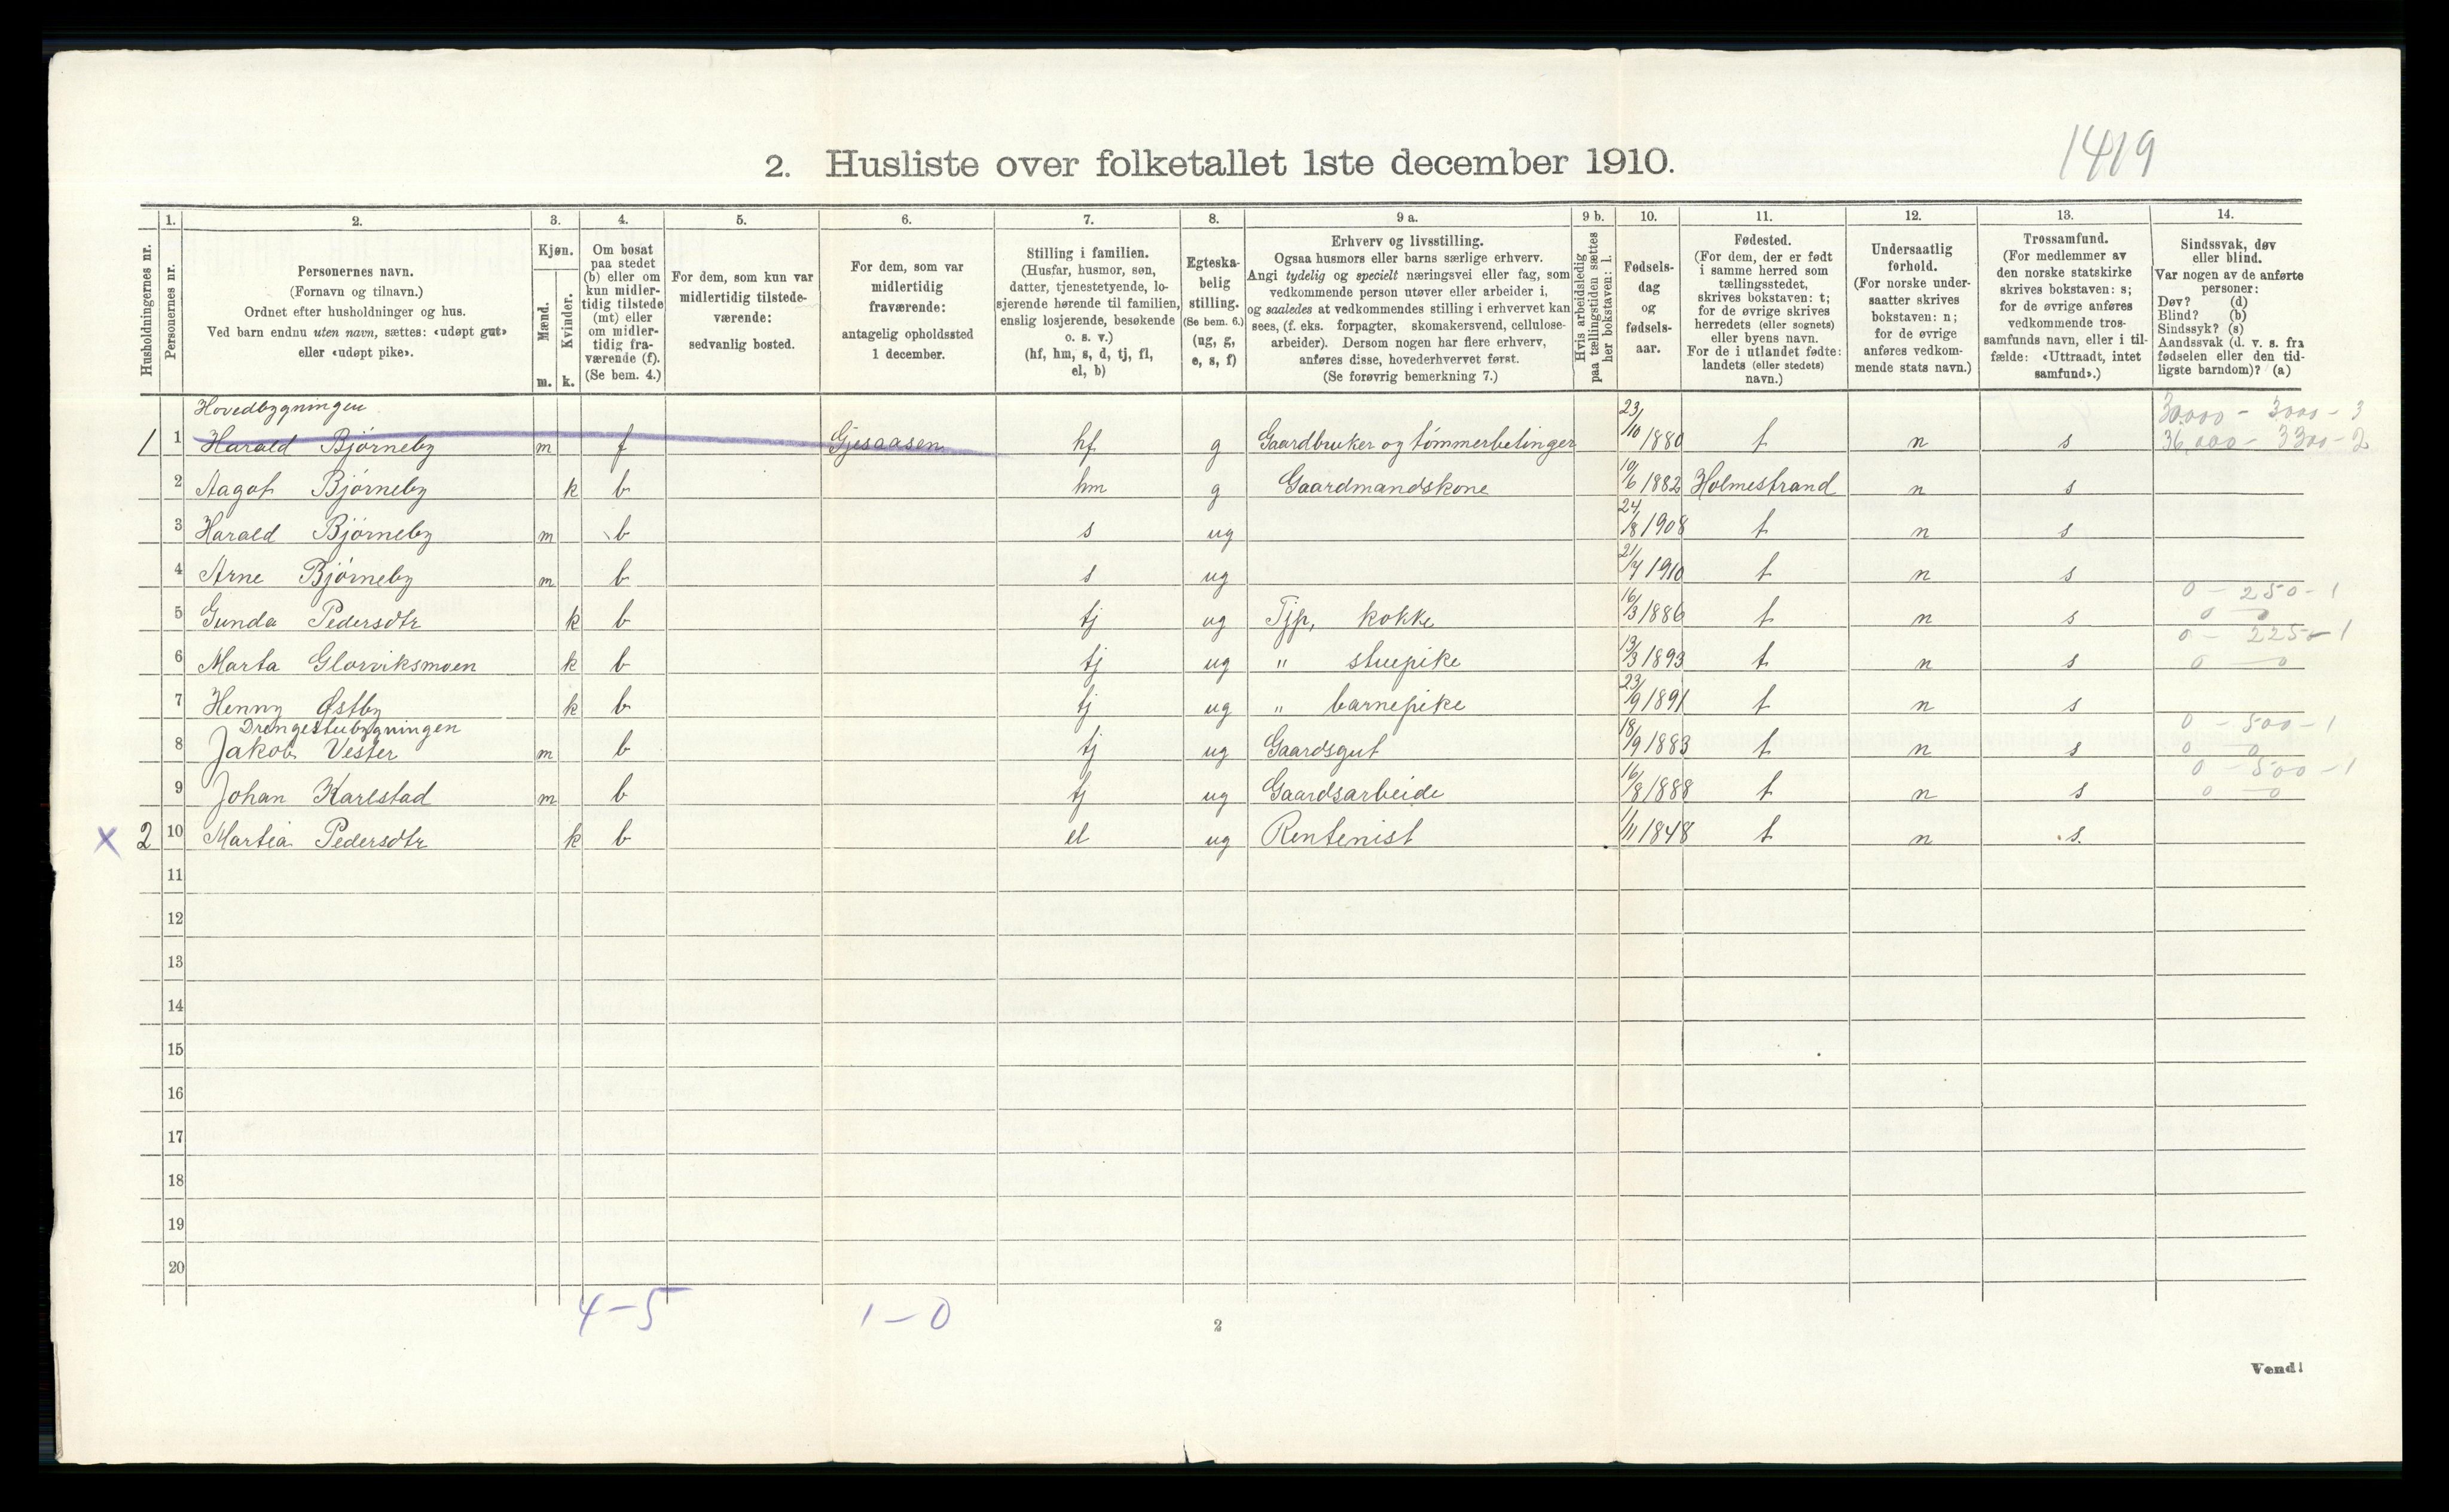 1419
2. Husliste over folketallet 1ste december 1910.
1. 2. 3. 4. 5. 6. 7. 8. 9 a. 9 b. 10. 11. 12. 13. 14.
Husholdningernes nr.
Personernes nr.
Personernes navn.
(Fornavn og tilnavn.)
Ordnet efter husholdninger og hus.
Ved barn endnu uten navn, sættes: «udøpt gut»
eller «udøpt pike».
Kjøn.
Mænd.
Kvinder.
m. k.
Om bosat
paa stedet
(b) eller om
kun midler-
tidig tilstede
(mt) eller
om midler-
tidig fra-
værende (f).
(Se bem. 4.)
For dem, som kun var
midlertidig tilstede-
værende:
sedvanlig bosted.
For dem, som var
midlertidig
fraværende:
antagelig opholdssted
1 december.
Stilling i familien.
(Husfar, husmor, søn,
datter, tjenestetyende, lo-
sjerende hørende til familien,
enslig losjerende, besøkende
o. s. v.)
(hf, hm, s, d, tj, fl,
el, b)
Egteska-
belig
stilling.
(Se bem. 6.)
(ug, g,
e, s, f)
Erhverv og livsstilling.
Ogsaa husmors eller barns særlige erhverv.
Angi tydelig og specielt næringsvei eller fag, som
vedkommende person utøver eller arbeider i,
og saaledes at vedkommendes stilling i erhvervet kan
sees, (f. eks. forpagter, skomakersvend, cellulose-
arbeider). Dersom nogen har flere erhverv,
anføres disse, hovederhvervet først.
(Se forøvrig bemerkning 7.)
Hvis arbeidsledig
paa tællingstiden sættes
her bokstaven: l.
Fødsels-
dag
og
fødsels-
aar.
Fødested.
(For dem, der er født
i samme herred som
tællingsstedet,
skrives bokstaven: t;
for de øvrige skrives
herredets (eller sognets)
eller byens navn.
For de i utlandet fødte:
landets (eller stedets)
navn.)
Undersaatlig
forhold.
(For norske under-
saatter skrives
bokstaven: n;
for de øvrige
anføres vedkom-
mende stats navn.)
Trossamfund.
(For medlemmer av
den norske statskirke
skrives bokstaven: s;
for de øvrige anføres
vedkommende tros-
samfunds navn, eller i til-
fælde: «Uttraadt, intet
samfund».)
Sindssvak, døv
eller blind.
Var nogen av de anførte
personer:
Døv? (d)
Blind? (b)
Sindssyk? (s)
Aandssvak (d. v. s. fra
fødselen eller den tid-
ligste barndom)? (a)
Hovedbygningen 30.000 - 3000 - 3
1 1 Harald Bjørneby m f Gjesaasen hf g Gaardbruker og tømmerbetinger 23/10 1880 t n s 36,000 - 3300 - 2
2 Aagot Bjørneby k b hm g Gaardmandskone 10/6 1882 Holmestrand n s
3 Harald Bjørneby m b s ug 24/8 1908 t n s
4 Arne Bjørneby m b s ug 21/4 1910 t n s
0 - 250 - 1
5 Gunda Pedersdtr k b tj ug Tjp, kokke 16/3 1886 t n s 0 - 0
0 - 225 - 1
6 Marta Glorviksmoen k b tj ug " stuepike 13/3 1893 t n s 0 - 0
7 Henny Østby k b tj ug " barnepike 23/9 1891 t n s
Drengestubygningen 0 - 500 - 1
8 Jakob Vester m b tj ug Gaardsgut 18/9 1883 t n s 0 - 0
0 - 500 - 1
9 Johan Karlstad m b tj ug Gaardsarbeide 16/8 1888 t n s 0 - 0
X 2 10 Martia Pedersdtr k b el ug Rentenist 1/11 1848 t n s.
11
12
13
14
15
16
17
18
19
20
4 - 5 1 - 0
2
Vend!